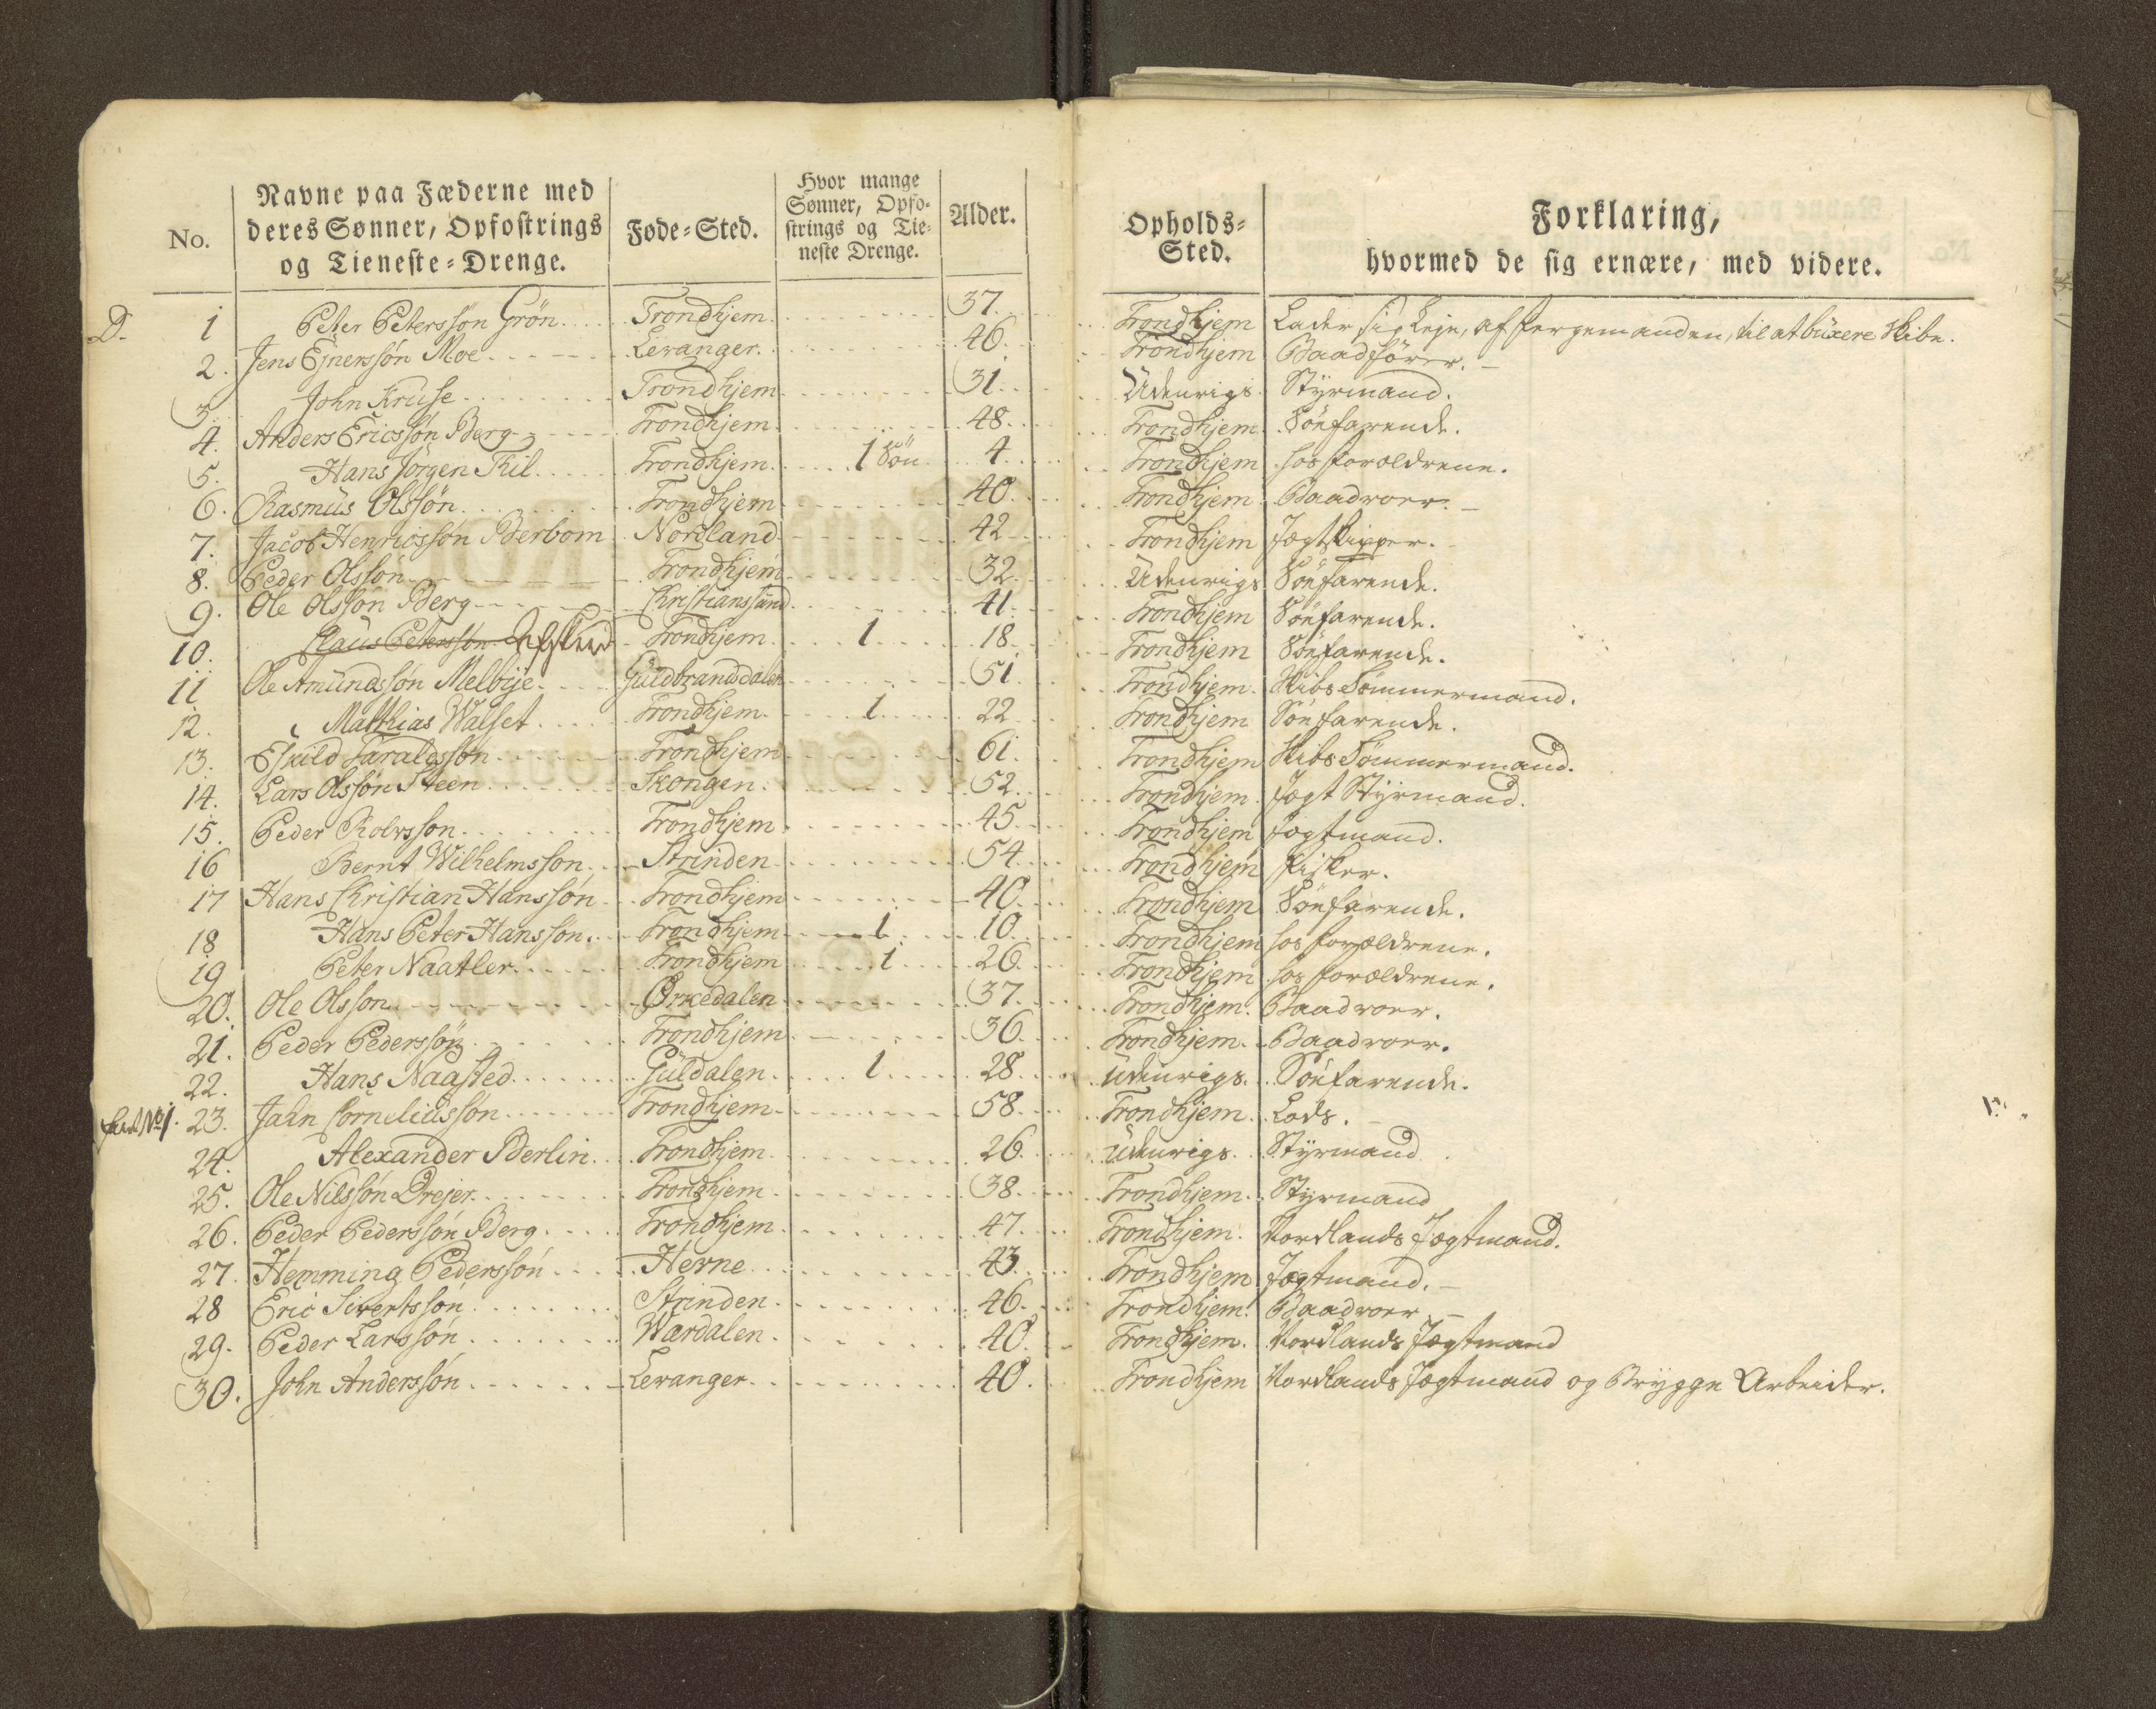 No.
Navne paa Fæderne med
deres Sønner, Opfostrings
og Tieneste-Drenge.
Føde-Sted.
Hvor mange
Sønner, Opfo-
strings og Tie-
neste Drenge.
Alder.
Opholds-
Sted.
Forklaring,
hvormed de sig ernære, med videre.
D. 1 Peter Peterssøn Grön Trondhjem 37. Trondhjem Lader sig leje, af færgemanden, til at buxere Skibe.
2. Jens Ejnerssøn Moe Levanger. 46. Trondhjem Baadfører.
3. John Kruse Trondhjem 31. Udenrigs Styrmand.
4. Anders Ericssøn Berg Trondhjem 48. Trondhjem Söefarende.
5. Hans Jörgen Kil Trondhjem 1 Sön 4 Trondhjem hos forældrene.
6. Rasmus Olssøn Trondhjem 40. Trondhjem Baadroer.
7. Jacob Henricssøn Berbom Nordland 42 Trondhjem Jægt Skipper.
8. Peder Olssøn Trondhjem 32 Udenrigs Söefarende.
9. Ole Olssøn Berg Christianssund 41. Trondhjem Söefarende.
10. Claus Peterssøn Afskeed Trondhjem 1 18. Trondhjem Söefarende.
11 Ole Amundssøn Melbye Guldbrandsdalen 51. Trondhjem. Skibs Tömmermand.
12. Matthias Walset Trondhjem 1 22 Trondhjem Söefarende.
13. Eskild Haraldssøn Trondhjem 61. Trondhjem Skibs Tömmermand.
14. Lars Olssøn Steen Skongen 52. Trondhjem. Jægt Styrmand.
15. Peder Rolvssøn Trondhjem 45 Trondhjem Jægtmand.
16 Bernt Wilhelmssøn Strinden 54. Trondhjem fisker.
17 Hans Christian Hanssøn Trondhjem 40. Trondhjem Söefarende.
18 Hans Peter Hanssøn Trondhjem 1 10. Trondhjem hos forældrene.
19 Peter Naatler Trondhjem 1 26. Trondhjem hos forældrene.
20. Ole Olssøn Örkedalen 37. Trondhjem. Baadroer.
21. Peder Pederssøn Trondhjem 36. Trondhjem. Baadroer.
22. Hans Naasted Guldalen 1 28. Udenrigs. Söefarende.
23. Jahn Corneliussøn Trondhjem 58. Trondhjem. Lods.
24. Alexander Berlin Trondhjem 26. Udenrigs. Styrmand
25. Ole Nilssøn Drejer Trondhjem 38. Trondhjem. Styrmand
26. Peder Pederssøn Berg Trondhjem 47. Trondhjem. Nordlands Jægtmand.
27. Hemming Pederssøn Herne 43. Trondhjem Jægtmand.
28 Eric Sivertssøn Strinden 46. Trondhjem. Baadroer
29. Peder Larssøn Wardalen 40. Trondhjem. Nordlands Jægtmand
30. John Anderssøn Levanger 40. Trondhjem Nordlands Jægtmand og Brygge Arbeider.